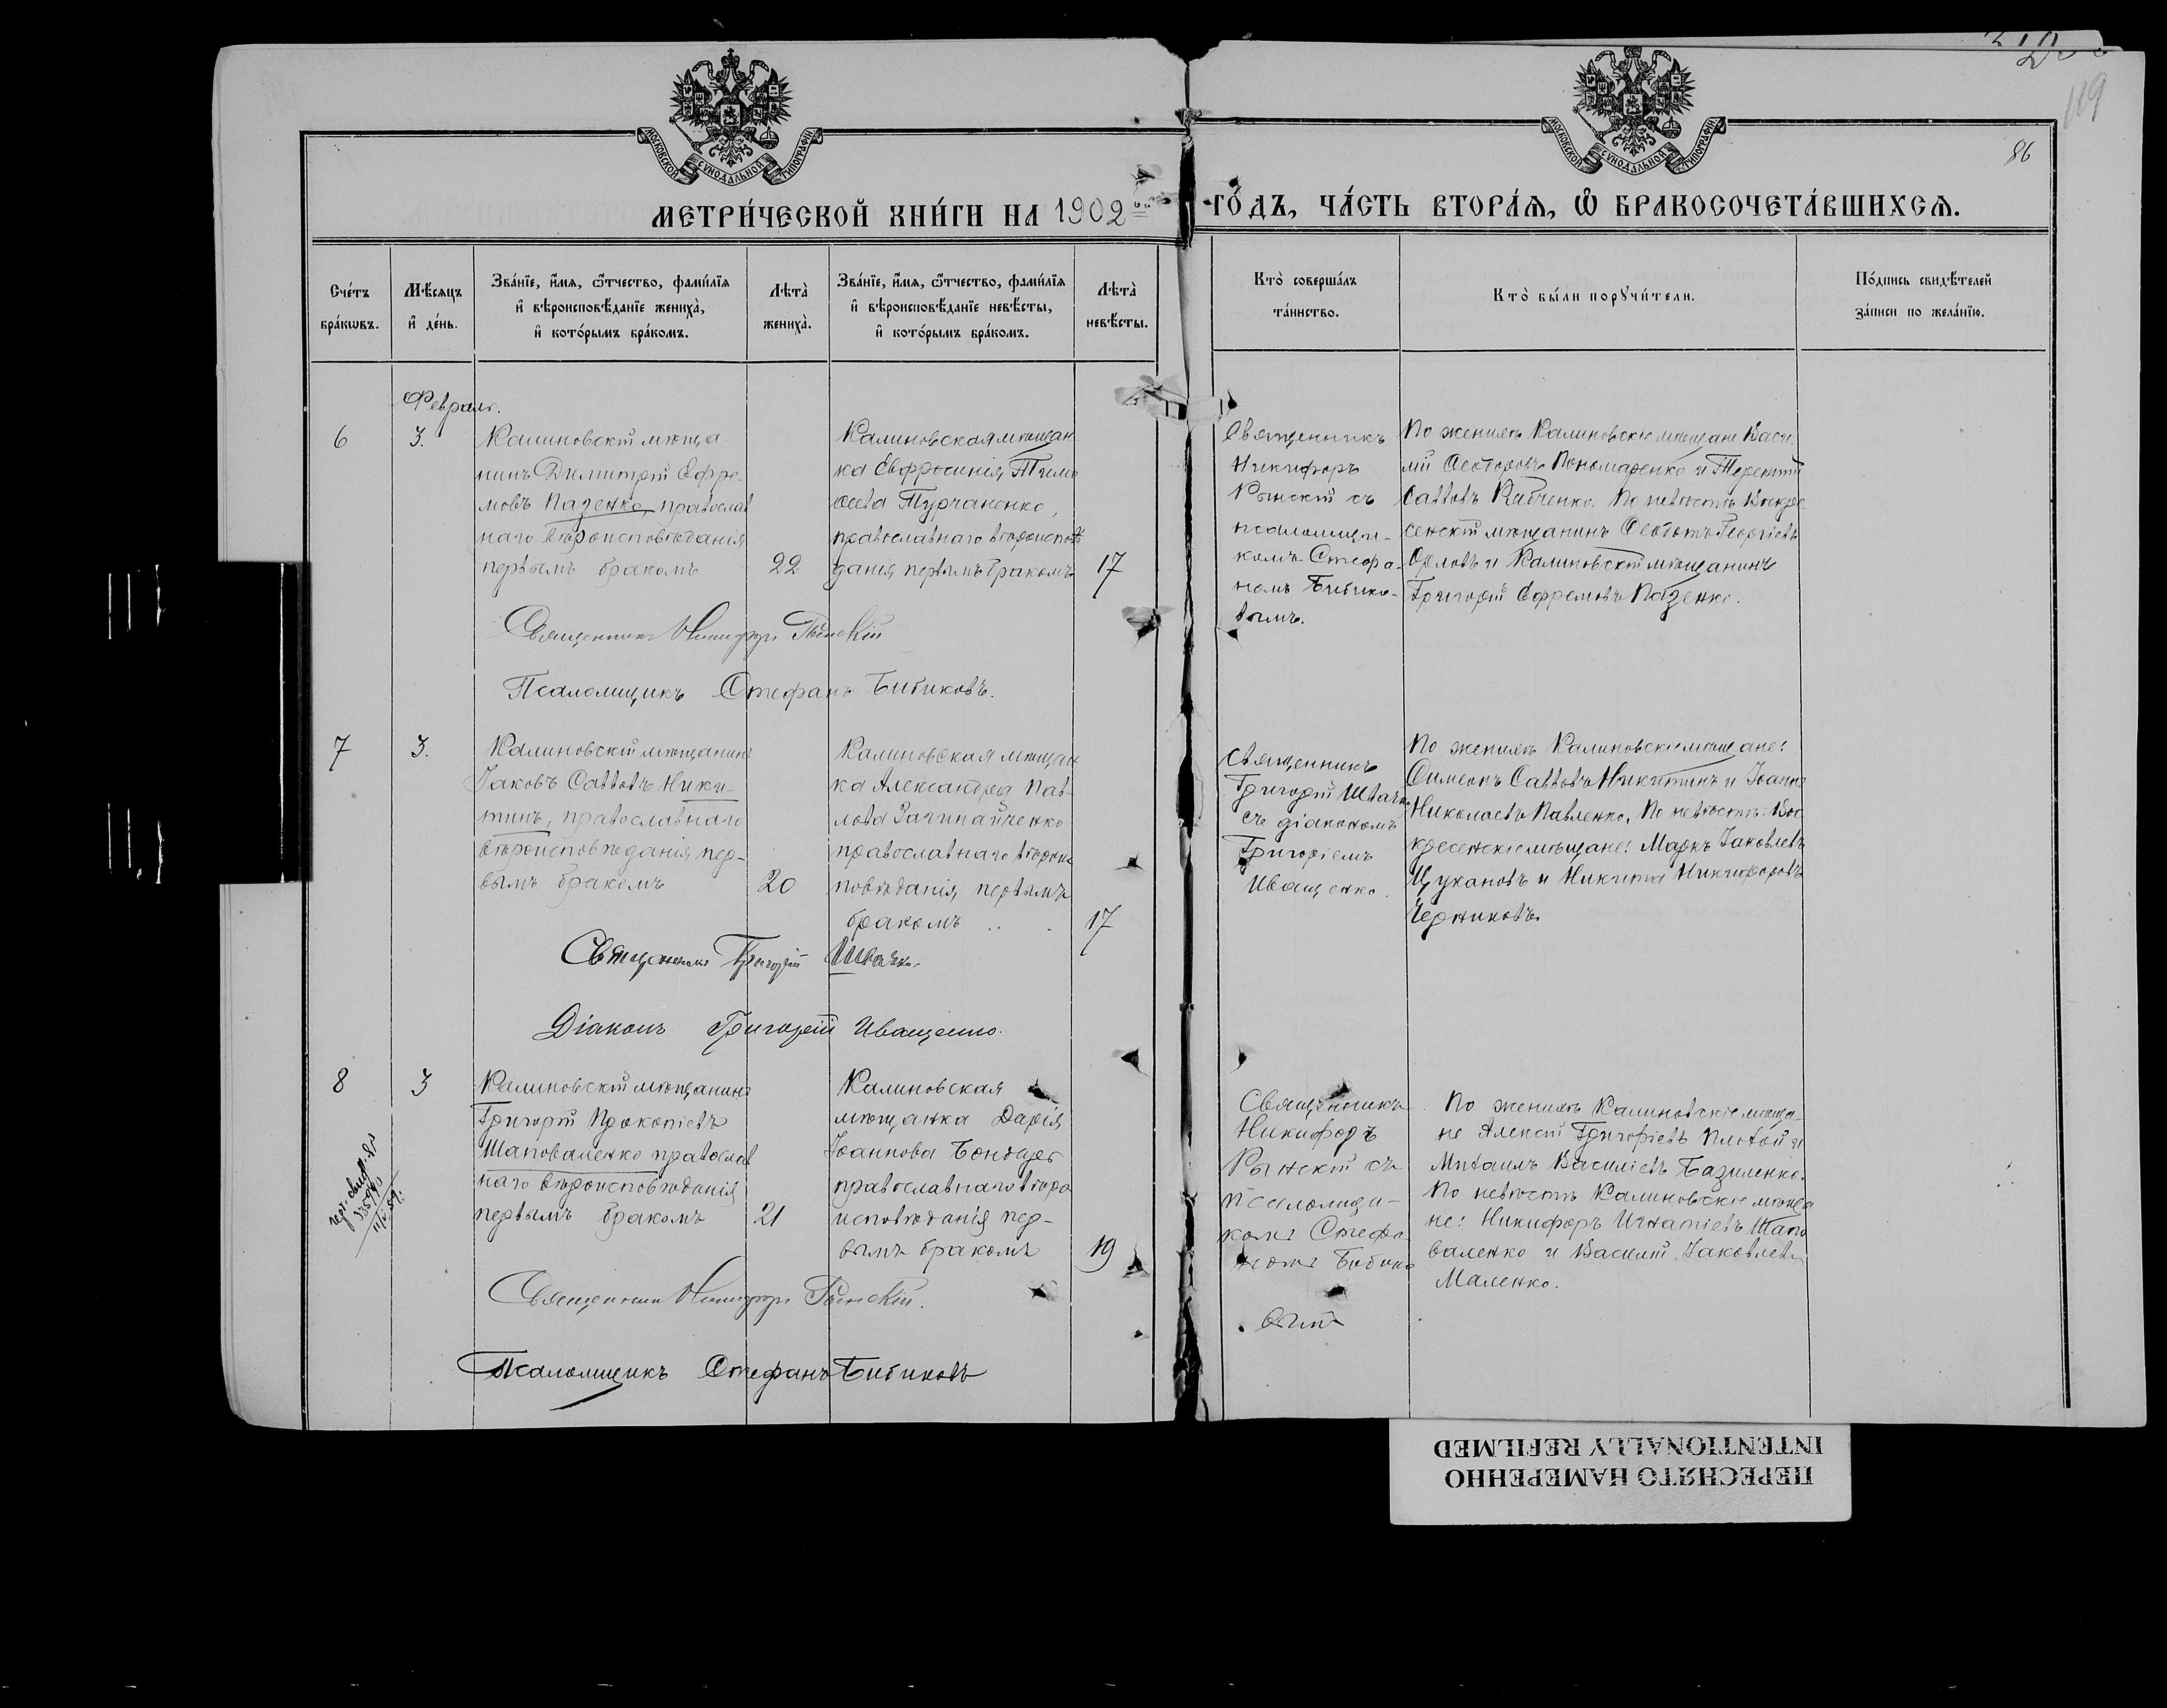 119
86
МОСКОВСКОЙ СѴНОДАЛЬНОЙ ТИПОГРАФІИ
МОСКОВСКОЙ СѴНОДАЛЬНОЙ ТИПОГРАФІИ
МЕТРИ́ЧЕСКОЙ КНИ́ГИ НА 1902 ГО́ДЪ, ЧА́СТЬ ВТОРА́Ѧ, Ѽ БРАКОСОЧЕТА́ВШИХСѦ.
Сче́тъ
бра́кѡвъ.
Мѣ́сѧцъ
и҆ де́нь.
Зва́нїе, и҆́мѧ, ѻ҆́тчество, фами́лїѧ
и҆ вѣроисповѣ́данїе жениха̀,
и҆ кото́рымъ бра́комъ.
Лѣта̀
жениха̀.
Зва́нїе, и҆́мѧ, ѻ҆́тчество, фами́лїѧ
и҆ вѣроисповѣ́данїе невѣ́сты,
и҆ кото́рымъ бра́комъ.
Лѣта̀
невѣ́сты.
Кто̀ соверша́лъ
та́инство.
Кто̀ бы́ли порꙋчи́тели.
По́дпись свидѣ́телей
за́писи по жела́нїю.
Февраль.
6
3.
Калиновскій мѣща-
нинъ Димитрій Ефре-
мовъ Пазенко, православ
наго вѣроисповѣданія
первымъ бракомъ
22
Калиновская мѣщан
ка Евфросинія Тимо
ѳеева Турчаненко,
православнаго вѣроисповѣ
данія первымъ бракомъ
17
Священникъ
Никифоръ
Рынскій съ
псаломщи-
комъ Стефа-
номъ Бибико-
вымъ.
По женихѣ Калиновскіе мѣщане Васи
лій Ѳеодоровъ Пономаренко и Терентій
Саввовъ Рябченко. По невѣстѣ Воскре
сенскій мѣщанинъ Ѳеодотъ Георгіевъ
Орловъ и Калиновскій мѣщанинъ
Григорій Ефремовъ Пазенко.
Священникъ Никифоръ Рынскій
Псаломщикъ Стефанъ Бибиковъ.
7
3.
Калиновскій мѣщанинъ
Іаковъ Саввовъ Ники-
тинъ, православнаго
вѣроисповѣданія пер-
вымъ бракомъ
20
Калиновская мѣщан
ка Александра Пав-
лова Загинайченко
православнаго вѣроис
повѣданія первымъ
бракомъ
17
Священникъ
Григорій Швачко
съ діакономъ
Григоріемъ
Иващенко.
По женихѣ Калиновскіе мѣщане:
Симеонъ Саввовъ Никитинъ и Іоаннъ
Николаевъ Павленко. По невѣстѣ: Вос
кресенскіе мѣщане: Маркъ Іаковлевъ
Цукановъ и Никита Никифоровъ
Черниковъ.
Священникъ Григорій Швачко.
Діаконъ Григорій Иващенко.
8
3
Калиновскій мѣщанинъ
Григорій Прокопіевъ
Шаповаленко православ
наго вѣроисповѣданія
первымъ бракомъ
21
Калиновская
мѣщанка Дарія
Іоаннова Бондарь
православнаго вѣро
исповѣданія пер-
вымъ бракомъ
19
Священникъ
Никифоръ
Рынскій съ
псаломщи-
комъ Стефа
номъ Бибико
вымъ
По женихѣ Калиновскіе мѣща-
не Алексій Григоріевъ Плохой и
Михаилъ Василіевъ Базиленко.
По невѣстѣ Калиновскіе мѣща
не: Никифоръ Игнатіевъ Шапо
валенко и Василій Іаковлевъ
Маленко.
Священникъ Никифоръ Рынскій.
Псаломщикъ Стефанъ Бибиковъ
ПЕРЕСНЯТО НАМЕРЕННО
INTENTIONALLY REFILMED